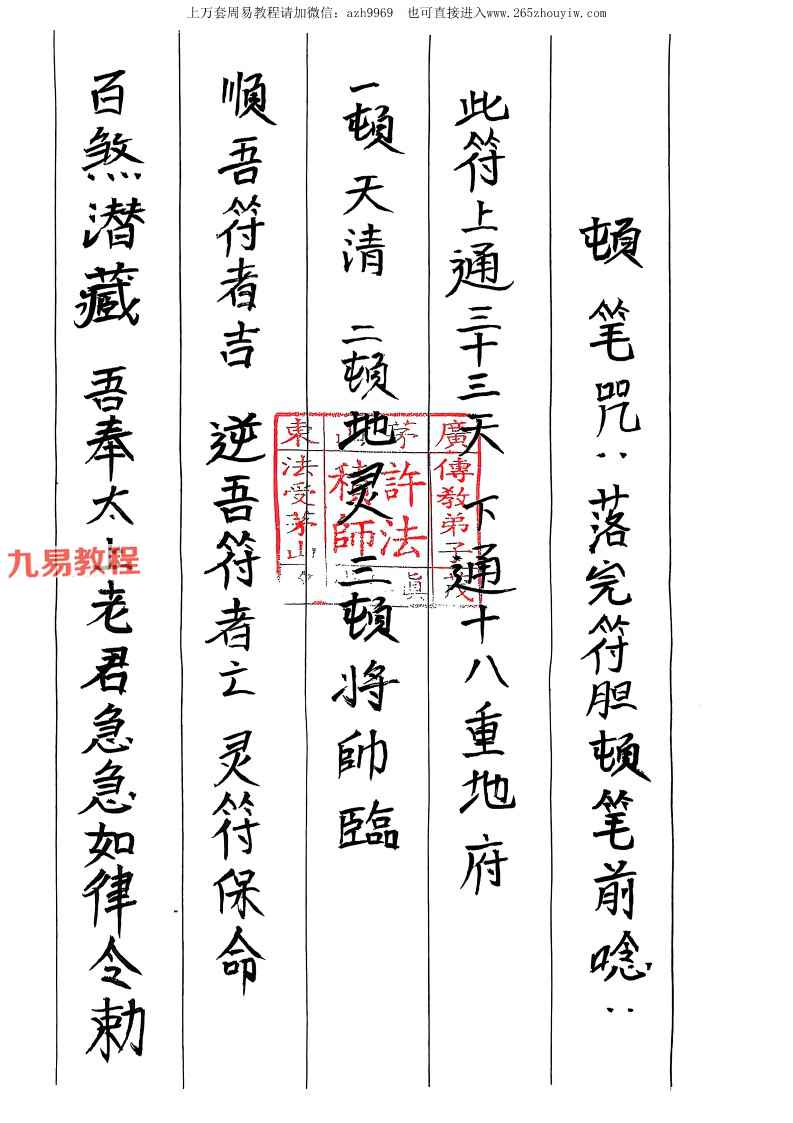 上万套周易教程请加微信：azh9969　也可直接进入www.265zhouyiw.com
頓笔咒：落完符胆頓笔前唸：
此符上通三十三天　下通十八重地府
一頓天清　二頓地灵　三頓将帥臨
順吾符者吉　逆吾符者亡　灵符保命
百煞潜藏　吾奉太上老君急急如律令勅
廣傳教弟子茂
許法
師
東法受茅山
九易教程